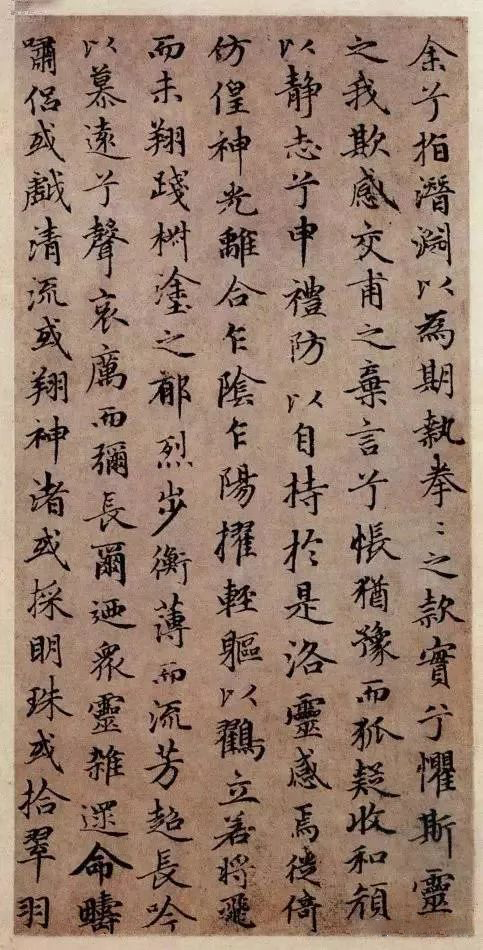 余兮指潛淵以為期執拳〻之款實兮懼斯靈
之我欺感交甫之棄言兮悵猶豫而狐疑收和顏
以靜志兮申禮防以自持於是洛靈感焉徙倚
仿偟神光離合乍陰乍陽擢輕軀以鶴立若將飛
而未翔踐椒塗之郁烈步衡薄而流芳超長吟
以慕遠兮聲哀厲而彌長爾迺眾靈雜遝命疇
嘯侶或戲清流或翔神渚或採明珠或拾翠羽